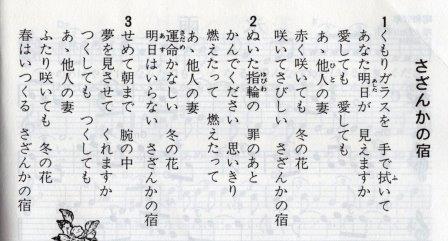 さざんかの宿
1 くもりガラスを 手で拭いて
あなた明日が 見えますか
愛しても 愛しても
あゝ他人の妻
赤く咲いても 冬の花
咲いてさびしい さざんかの宿
2 ぬいた指輪の 罪のあと
かんでください 思いきり
燃えたって 燃えたって
あゝ他人の妻
運命かなしい 冬の花
明日はいらない さざんかの宿
3 せめて朝まで 腕の中
夢を見させて くれますか
つくしても つくしても
あゝ他人の妻
ふたり咲いても 冬の花
春はいつくる さざんかの宿